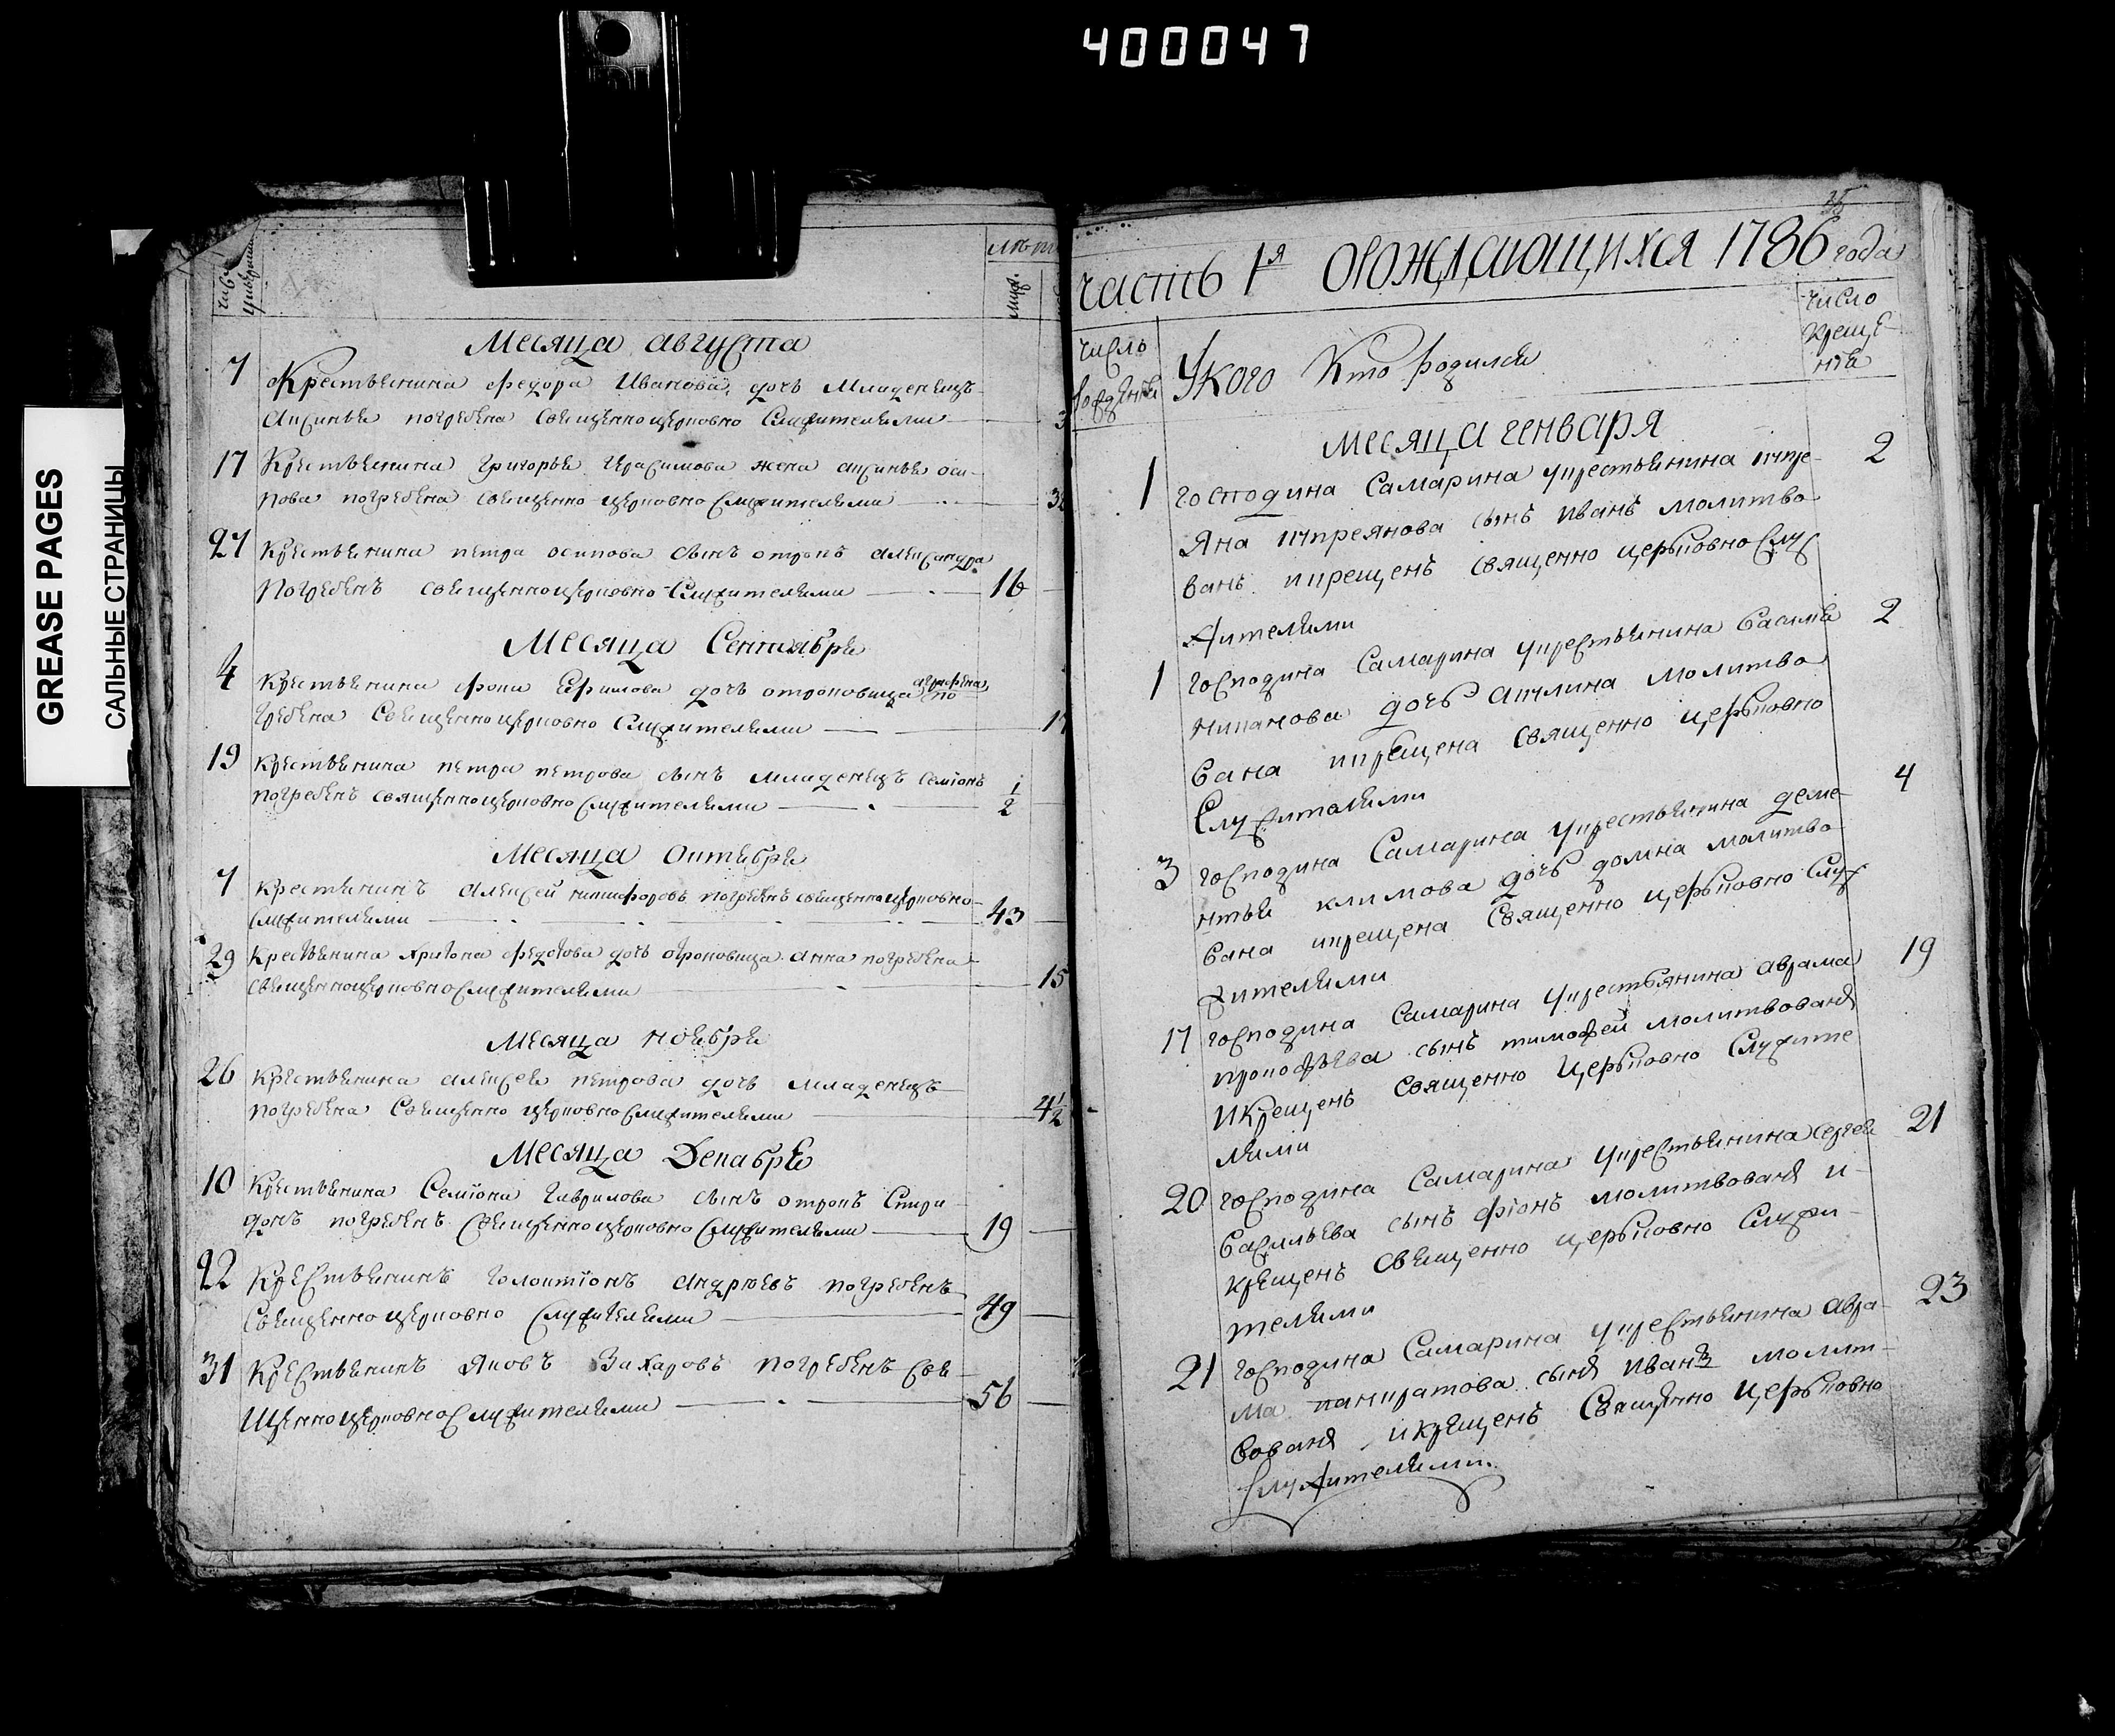 400047
GREASE PAGES
САЛЬНЫЕ СТРАНИЦЫ
число
умерших
лѣта
муж.
Месяца августа
7 Крестьянина федора Иванова дочь Младенецъ
Аксинья погребена священноцерковно служителями
17 Крестьянина григорья герасимова жена аксинья оси-
пова погребена священно-церковно служителями
27 Крестьянина петра осипова сынъ отрокъ александра
Погребенъ священноцерковно-служителями 16
Месяца Сентября
4 Крестьянина фоки Ефимова дочь отроковица аграфена по
гребена священноцерковно служителями
19 Крестьянина петра петрова сынъ младенецъ семїонъ
погребенъ священноцерковнослужителями 1/2
Месяца октября
7 Крестянинъ алексей никифоровъ погребенъ священноцерковно-
служителями 43
29 Крестянина Харитона федотова дочь отроковица анна погребена
священноцерковнослужителями 15
Месяца ноября
26 Крестьянина алексея петрова дочь младенецъ
погребена священно церковнослужителями 4 1/2
Месяца Декабря
10 Крестьянина Семїона гаврилова сынъ отрокъ Спири
донъ погребенъ священноцерковно служителями 19
22 Крестьянинъ голоктїонъ андрюевъ погребенъ
священноцерковно служителями 49
31 Крестьянинъ яковъ Захаровъ погребенъ свя
щенноцерковнослужителями 56
часть 1я ораждающихся 1786 года
число рождения
Укого Кто родился
число
креще-
нїя
месяца генваря
1 господина Самарина укрестьянина кипре- 2
яна кипреянова сынъ иванъ молитво
ванъ икрещенъ священно церьковно слу
жителями
1 господина Самарина укрестьянина василья 2
никанова дочь акилина молитво
вана икрещена священно церьковно
служителями
3 господина Самарина укрестьянина деме- 4
нтья климова дочь домна молитво
вана икрещена священно церьковно служ
жителями
17 господина Самарина укрестьянина аврама 19
прокофьева сынъ тимофей молитвованъ
икрещенъ священно церьковно служите
лями
20 господина Самарина укрестьянина сергея 21
васильева сынъ фїонъ молитвованъ и-
крещенъ священно церьковно служи-
телями
21 господина Самарина укрестьянина авра- 23
ма панкратова сынъ иванъ молит-
вованъ икрещенъ священно церьковно
служителями.